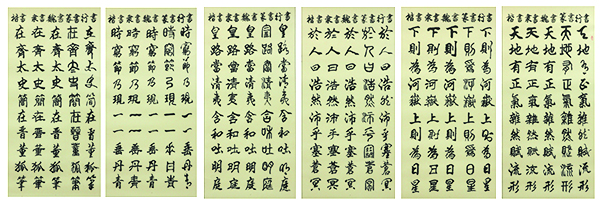 楷書隶書魏書篆書行書
天地有正氣雜然賦流形
天地有正氣雜然賦流形
天地有正氣雜然賦流形
天地有正氣雜然賦流形
天地有正氣雜然賦流形
楷書隶書魏書篆書行書
下則為河嶽上則為日星
下則為河嶽上則為日星
下則為河嶽上則為日星
下則為河嶽上則為日星
下則為河嶽上則為日星
楷書隶書魏書篆書行書
於人曰浩然沛乎塞蒼冥
於人曰浩然沛乎塞蒼冥
於人曰浩然沛乎塞蒼冥
於人曰浩然沛乎塞蒼冥
於人曰浩然沛乎塞蒼冥
楷書隶書魏書篆書行書
皇路當清夷含和吐明庭
皇路當清夷含和吐明庭
皇路當清夷含和吐明庭
皇路當清夷含和吐明庭
皇路當清夷含和吐明庭
楷書隶書魏書篆書行書
時窮節乃現一一垂丹青
時窮節乃現一一垂丹青
時窮節乃現一一垂丹青
時窮節乃現一一垂丹青
時窮節乃現一一垂丹青
楷書隶書魏書篆書行書
在齊太史簡在晉董狐筆
在齊太史簡在晉董狐筆
在齊太史簡在晉董狐筆
在齊太史簡在晉董狐筆
在齊太史簡在晉董狐筆